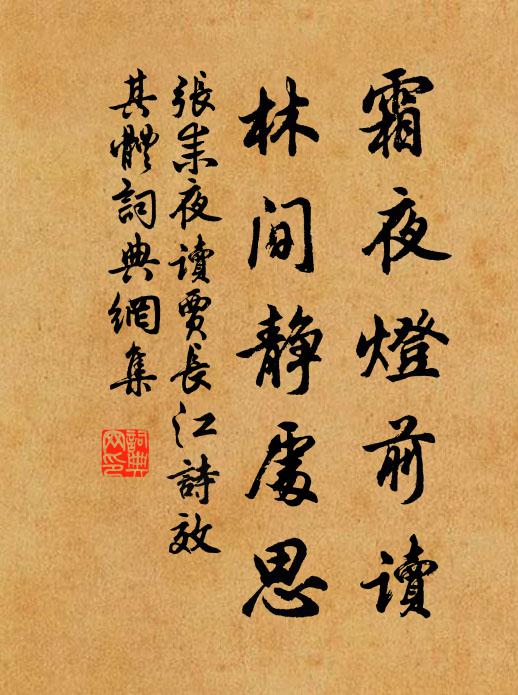 霜夜燈前讀
林間静處思
張耒夜讀賈長江詩效
其體詞典網集
詞典网印